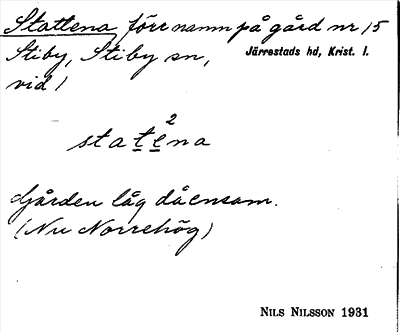 Stattena förr namn på gård nr 15
Stiby, Stiby sn, Järrestads hd, Krist. l.
vid /
statena
2
Gården låg då ensam.
(Nu Norrehög)
NILS NILSSON 1931